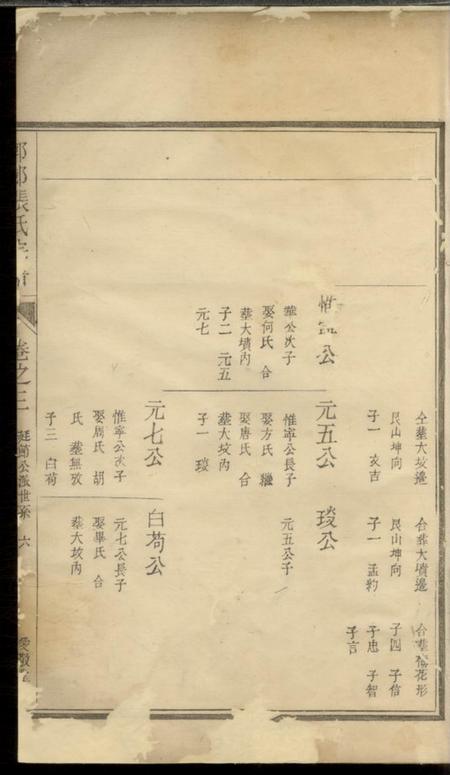 仝塟大坟邉
艮山坤向
子一 亥吉
合葬大墳邉
艮山坤向
子一 孟約
合塟 花形
子四 子信
子忠 子智
子言
惟 公
華公次子
娶何氏 合
塟大墳內
子二 元五
元七
元五公
惟寧公長子
娶方氏 繼
娶唐氏 合
塟大坟內
子一 琰
琰公
元五公子
元七公
惟寧公次子
娶周氏 胡
氏 塟無攷
子三 白苟
白苟公
元七公長子
娶畢氏 合
塟大坟內
張氏
卷之三
公派世系 六